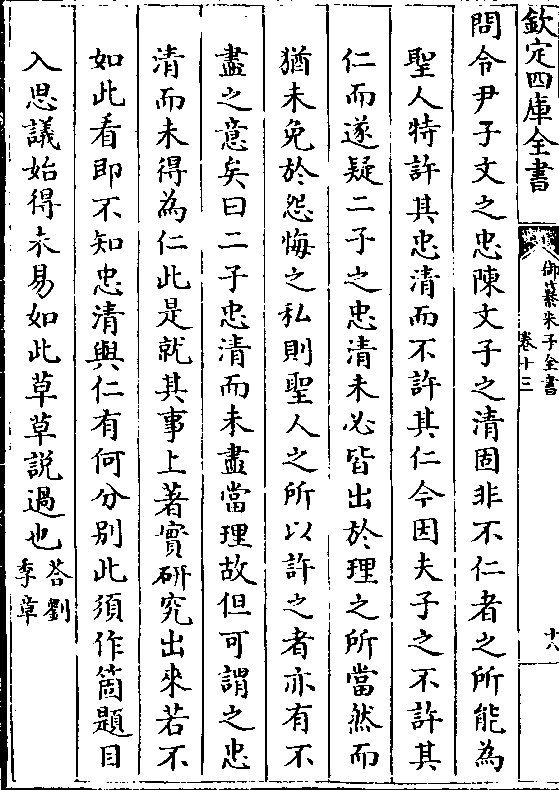 欽定四庫全書
御纂朱子全書
卷十三
十八
問令尹子文之忠陳文子之清固非不仁者之所能為
聖人特許其忠清而不許其仁今因夫子之不許其
仁而遂疑二子之忠清未必皆出於理之所當然而
猶未免於怨悔之私則聖人之所以許之者亦有不
盡之意矣曰二子忠清而未盡當理故但可謂之忠
清而未得為仁此是就其事上著實研究出來若不
如此看即不知忠清與仁有何分别此須作箇題目
入思議始得未易如此草草說過也
答劉
季章